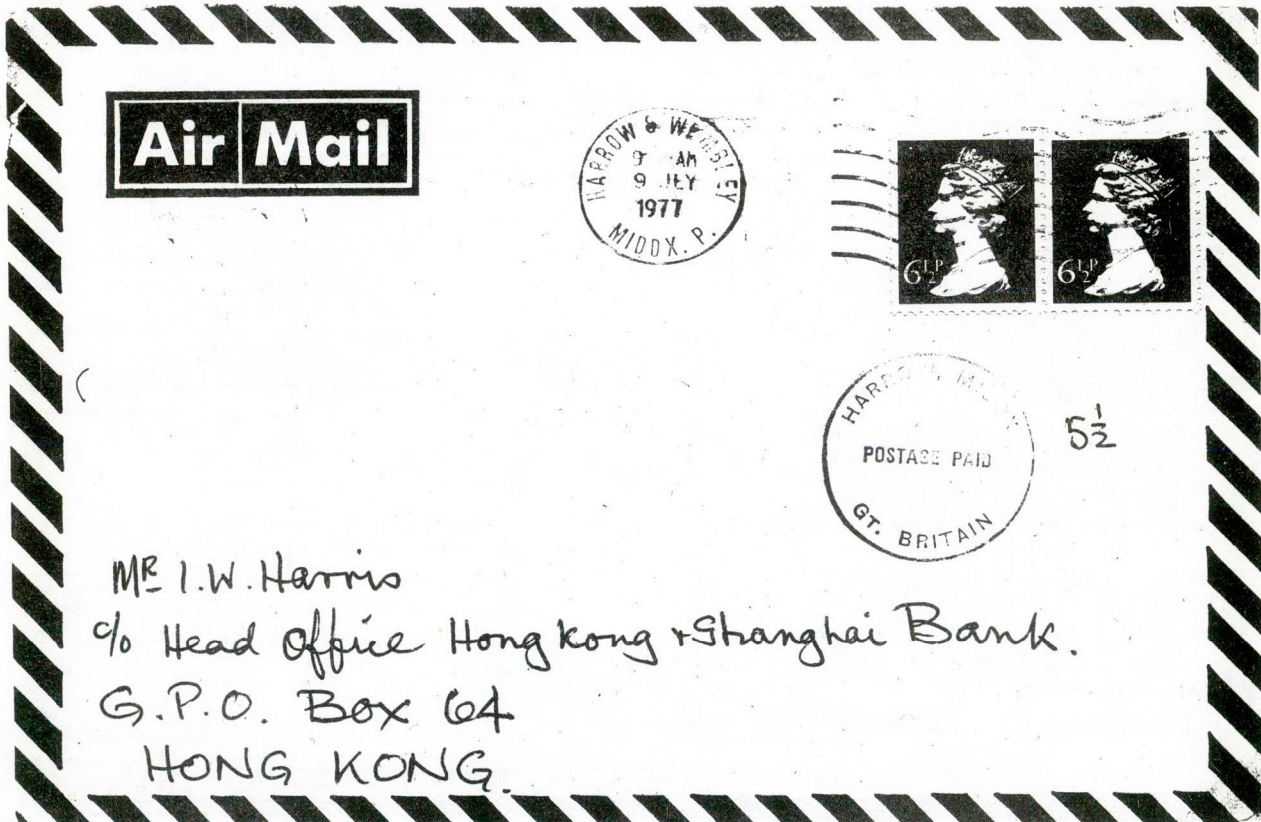 Air Mail
HARROW & WEMBLEY
9 AM
9 JLY
1977
MIDDX. P.
6½P 6½P
HARROW,
POSTAGE PAID
GT. BRITAIN
5½
Mr I. W. Harris
c/o Head Office Hong Kong & Shanghai Bank.
G.P.O. Box 64
HONG KONG.